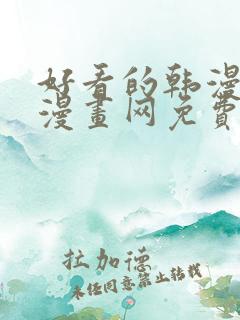 好看的韩漫
漫畫网免費
拉加德
未经同意禁止转载